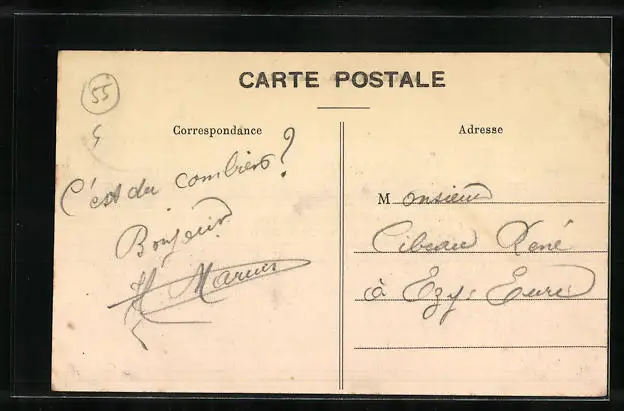 CARTE POSTALE
55
Correspondance
Adresse
C'est du combien?
Bonjour
H. Marius
Monsieur
Cibeau René
à Ezy. Eure